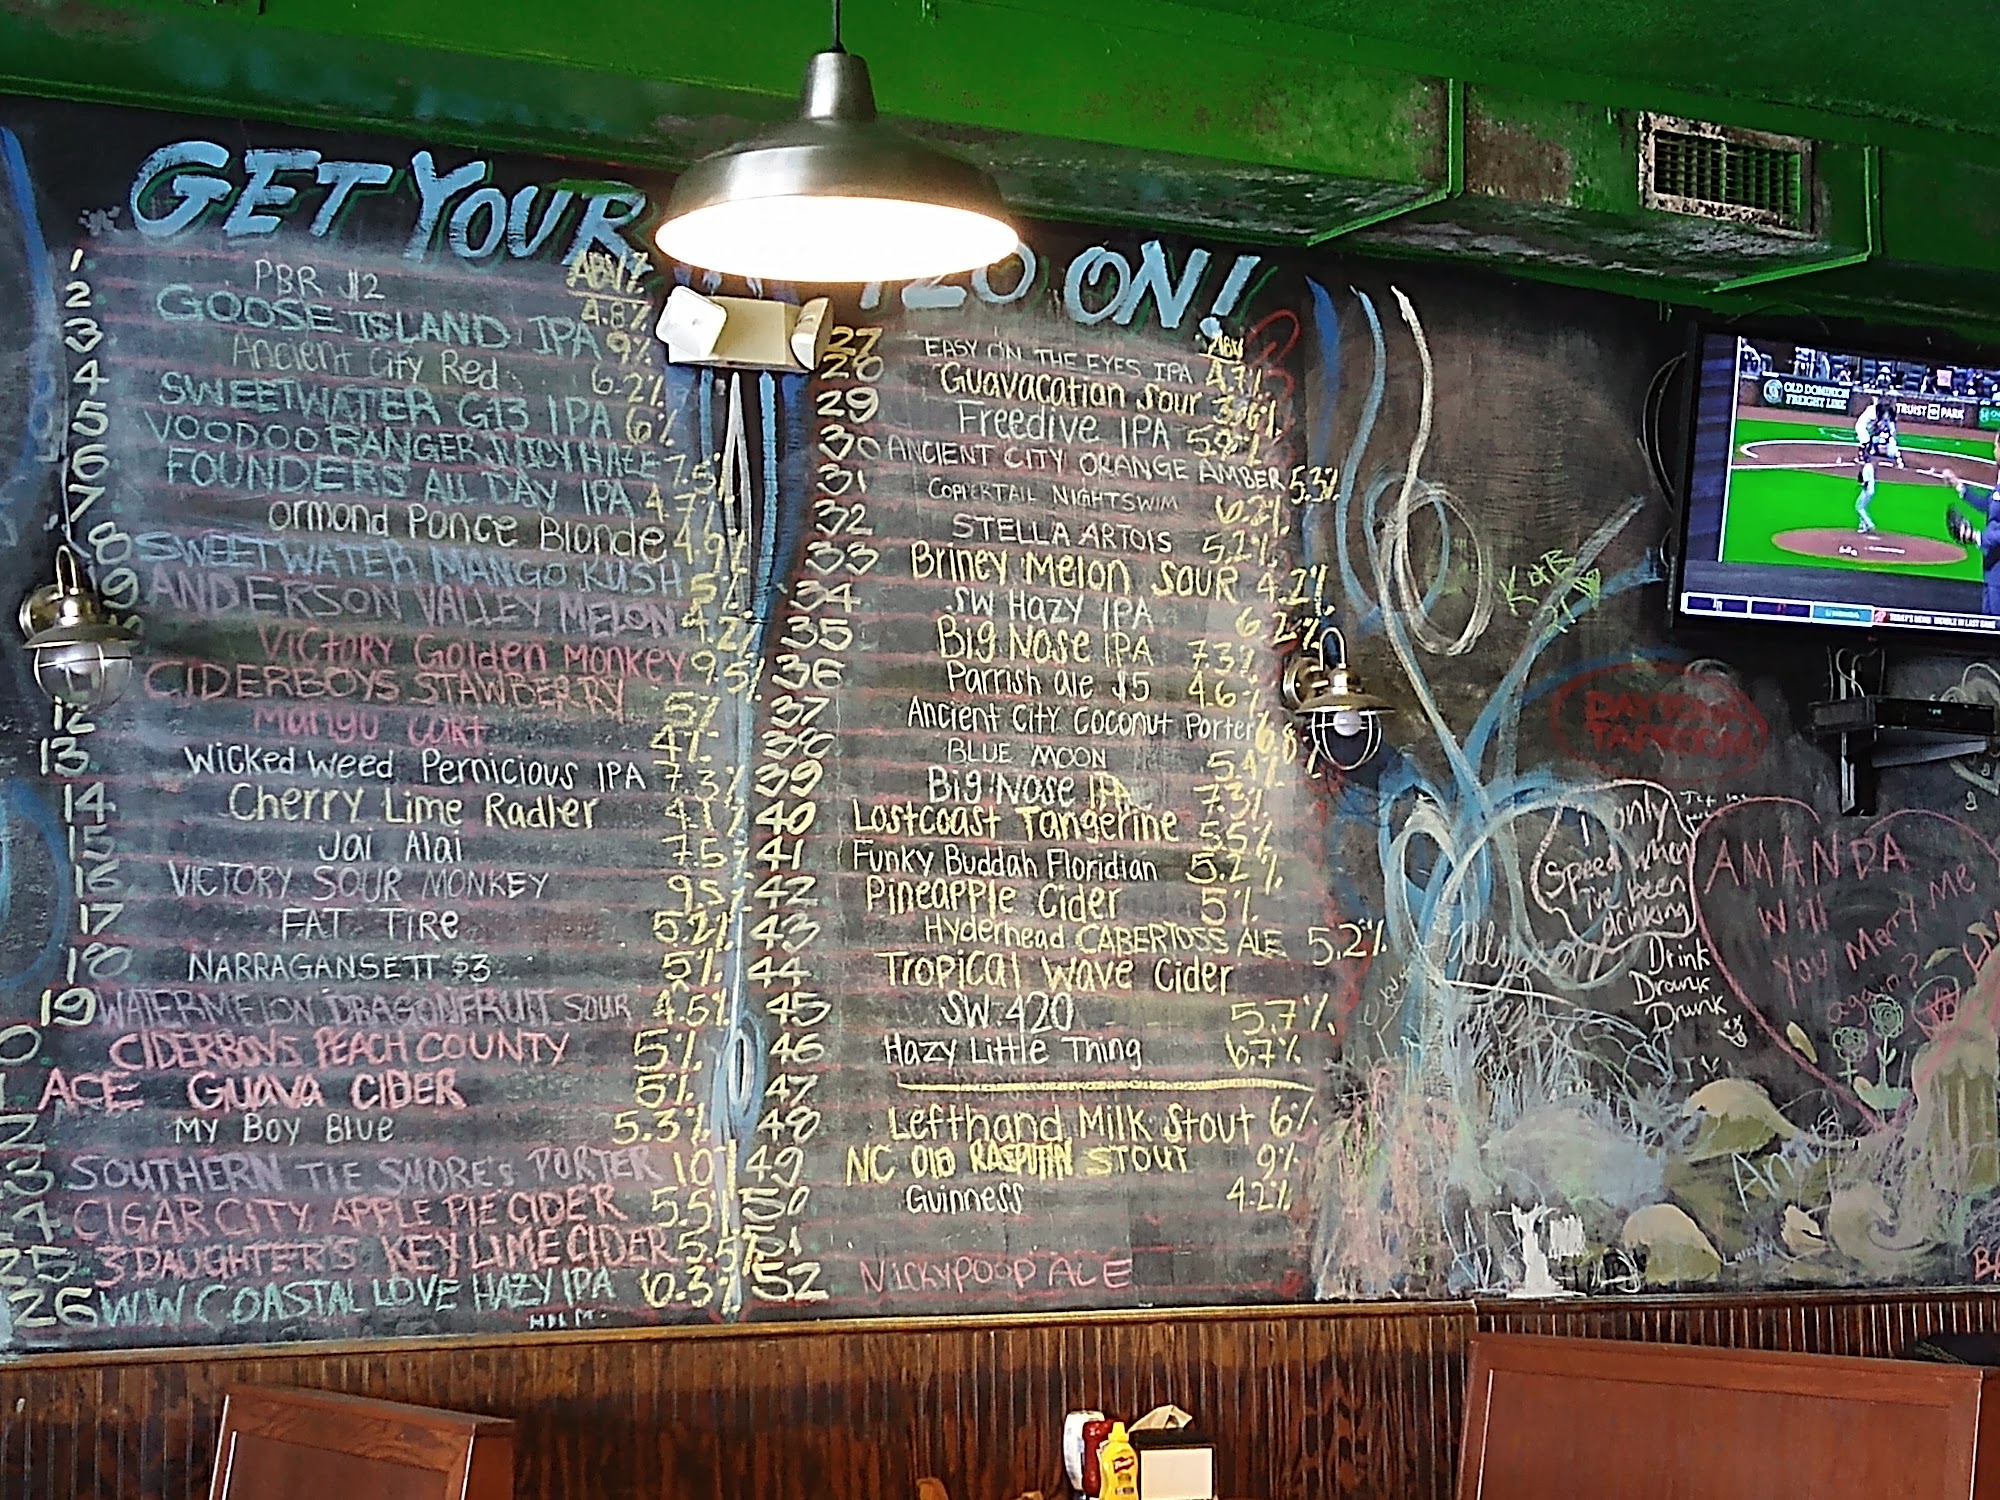 GET YOUR 420 ON!
ABV%
1 PBR $2 4.8%
2 GOOSE ISLAND IPA 9%
3 Ancient City Red 6.2%
4 SWEETWATER G13 IPA 6%
5 VOODOO RANGER JUICY HAZE 7.5%
6 FOUNDERS ALL DAY IPA 4.7%
7 ormond Ponce Blonde 4.9%
8 SWEETWATER MANGO KUSH 5%
9 ANDERSON VALLEY MELON 4.2%
VICTORY Golden MONKEY 9.5%
CIDERBOYS STAWBERRY 5%
12 Mango Cart 4%
13 Wicked Weed Pernicious IPA 7.3%
14 Cherry Lime Radler 4.1%
15 Jai Alai 7.5%
16 VICTORY SOUR MONKEY 9.5%
17 FAT TIRe 5.2%
18 NARRAGANSETT $3 5%
19 WATERMELON DRAGONFRUIT SOUR 4.5%
0 CIDERBOYS PEACH COUNTY 5%
1 ACE GUAVA CIDER 5%
2 MY BOY BLUE 5.3%
3 SOUTHERN TIE SMORE'S PORTER 10%
4 CIGAR CITY APPLE PIE CIDER 5.5%
25 3 DAUGHTER'S KEY LIME CIDER 5.5%
26 W.W COASTAL LOVE HAZY IPA 6.3%
ABV
27 EASY ON THE EYES IPA 4.7%
28 Guavacation Sour 3.6%
29 Freedive IPA 5.8%
30 ANCIENT CITY ORANGE AMBER 5.3%
31 COPPERTAIL NIGHTSWIM 6.2%
32 STELLA ARTOIS 5.2%
33 Briney Melon SOUR 4.2%
34 SW Hazy IPA 6.2%
35 Big Nose IPA 7.3%
36 Parrish ale $5 4.6%
37 Ancient City Coconut Porter 6.8%
38 BLUE MOON 5.4%
39 Big Nose IPA 7.3%
40 Lostcoast Tangerine 5.5%
41 Funky Buddah Floridian 5.2%
42 Pineapple Cider 5%
43 Hyderhead CABERTOSS ALE 5.2%
44 Tropical Wave Cider
45 SW 420 5.7%
46 Hazy Little Thing 6.7%
47
48 Lefthand Milk Stout 6%
49 NC Old RASPUTIN STOUT 9%
50 Guinness 4.2%
51
52 NICKYPOOP ALE
OLD DOMINION
FREIGHT LINE
TRUIST PARK
DAYTONA
TAPROOM
I only
Speed when
I've been
drinking
Drink
Drank
Drunk
AMANDA
Will
You Marry Me
again?